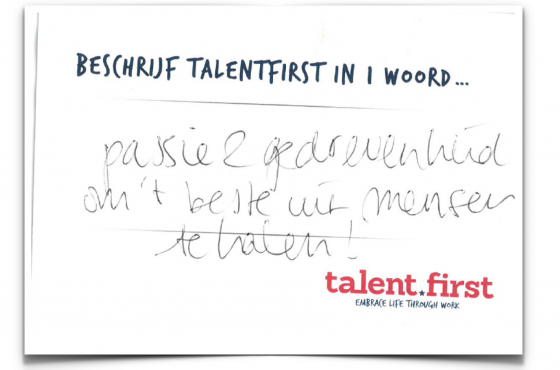 BESCHRIJF TALENTFIRST IN 1 WOORD...
passie & gedrevenheid
om 't beste uit mensen
te halen!
talent.first
EMBRACE LIFE THROUGH WORK